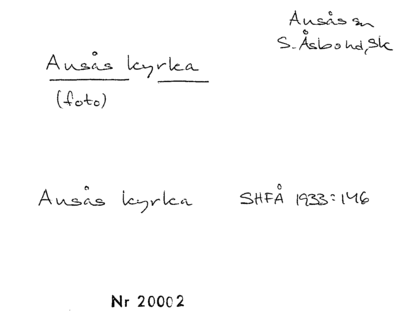 Ausås sn
S. Åsbo hd, Sk
Ausås kyrka
(foto)
Ausås kyrka SHFÅ 1933:146
Nr 20002